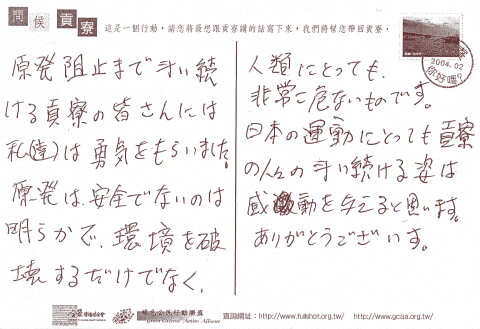 問候貢寮
這是一個行動，請您將最想跟貢寮講的話寫下來，我們將幫您帶回貢寮。
2004.02
你好嗎?
原発阻止まで斗い続
ける貢寮の皆さんには
私(達)は勇気をもらいました。
原発は、安全でないのは
明らかで、環境を破
壊するだけでなく、
人類にとっても、
非常に危ないものです。
日本の運動にとっても貢寮
の人々の斗い続ける姿は
感動を与えると思います。
ありがとうございます。
綠色公民行動聯盟
Green Citizens' Action Alliance
查詢網址：http://www.fullshot.org.tw/ http://www.gcaa.org.tw/